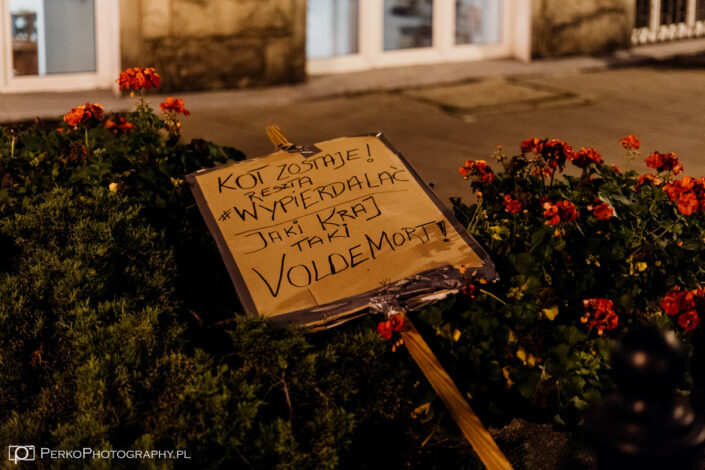 KOT ZOSTAJE!
RESZTA
#WYPIERDALAĆ
JAKI KRAJ
TAKI
VOLDEMORT!
PERKOPHOTOGRAPHY.PL